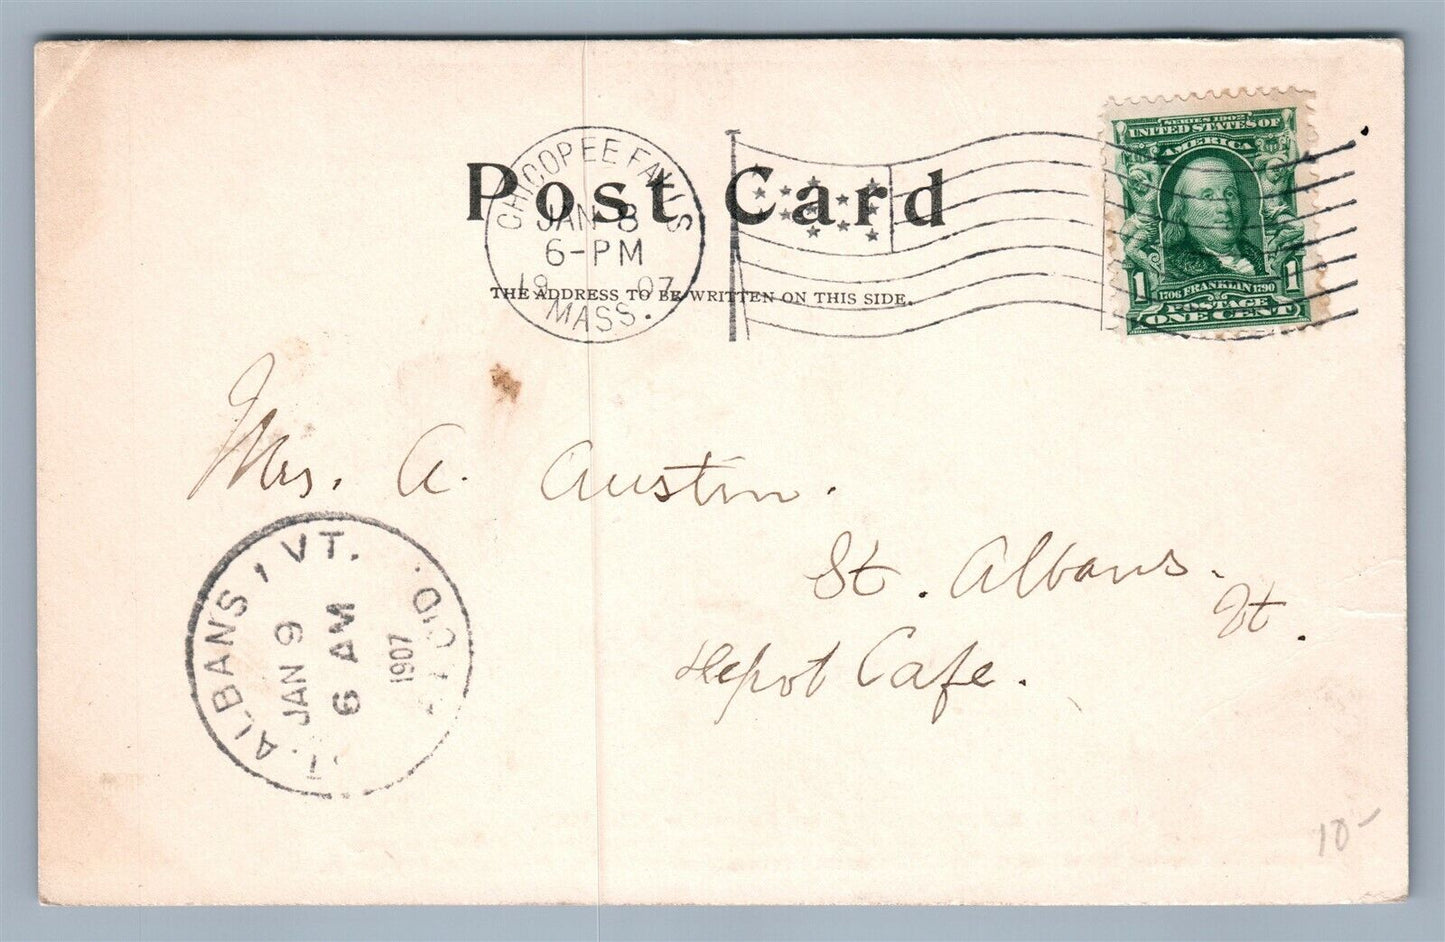 Post Card
THE ADDRESS TO BE WRITTEN ON THIS SIDE.
CHICOPEE FALLS
JAN 8
6-PM
1907
MASS.
SERIES 1902
UNITED STATES OF
AMERICA
1 1
1706 FRANKLIN 1790
POSTAGE
ONE CENT
Mrs. A. Austin.
St. Albans.
Vt.
Depot Cafe.
ST. ALBANS, VT.
JAN 9
6 AM
1907
REC'D.
10-